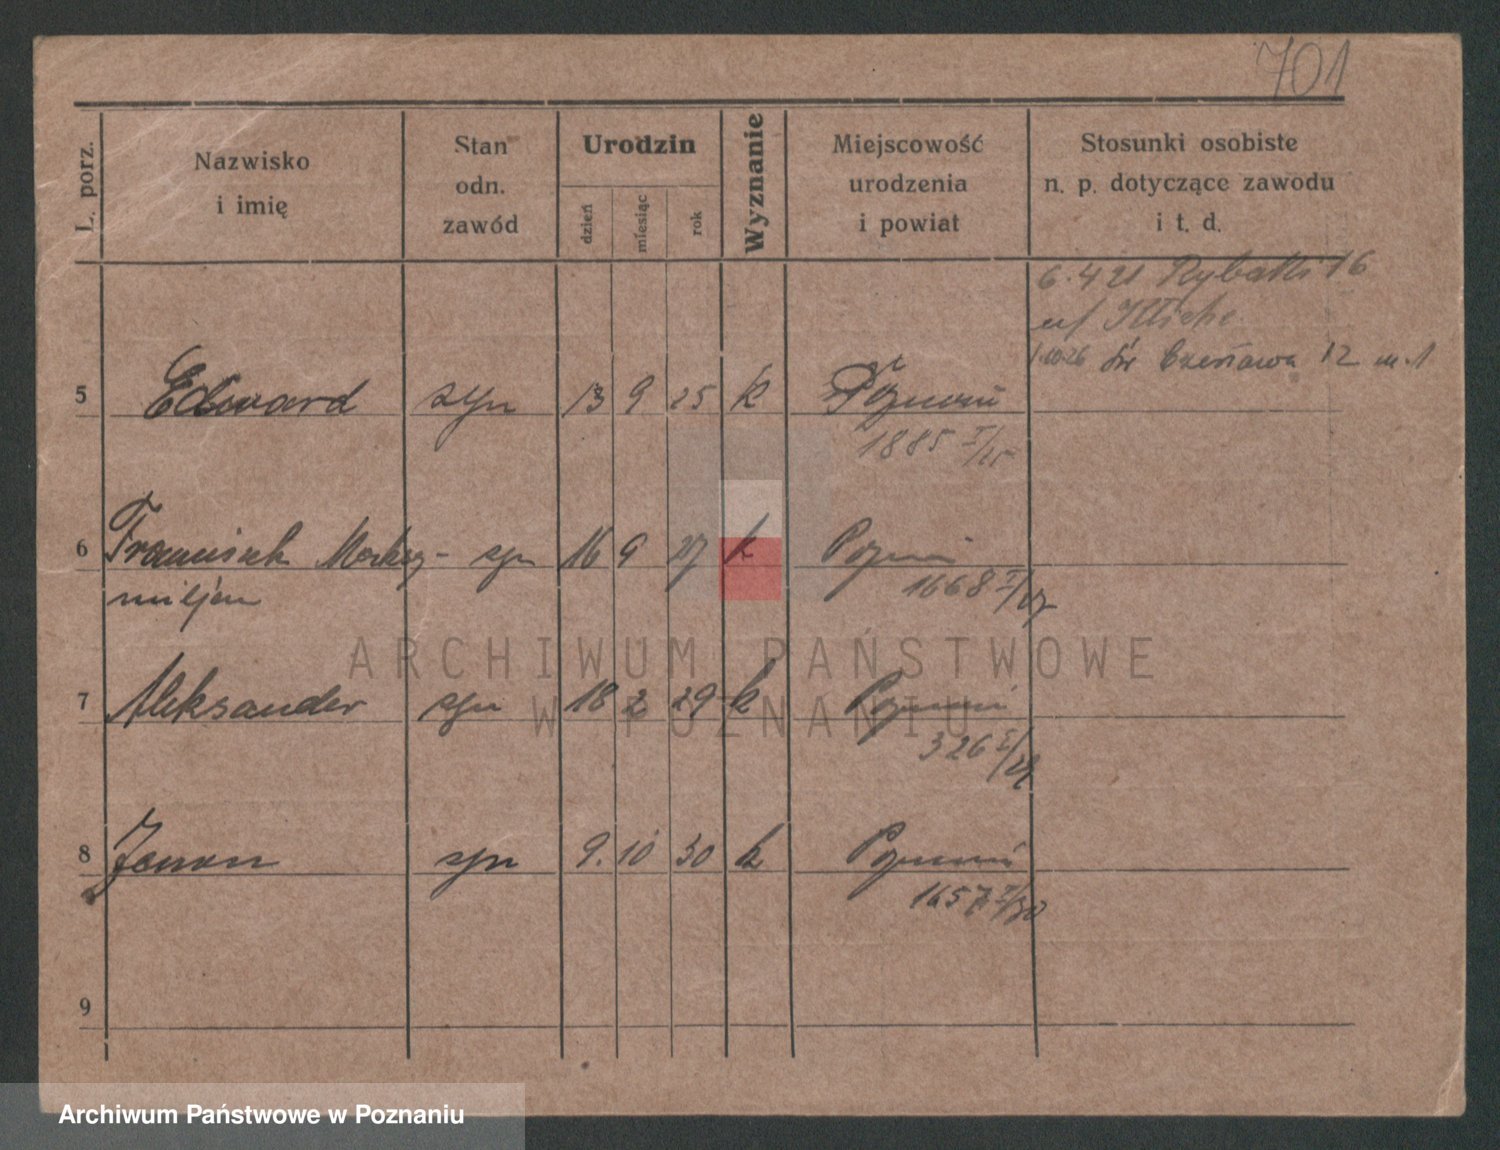 701
L. porz.
Nazwisko
i imię
Stan
odn.
zawód
Urodzin
dzień
miesiąc
rok
Wyznanie
Miejscowość
urodzenia
i powiat
Stosunki osobiste
n. p. dotyczące zawodu
i t. d.
6.4 21 Rybaki 16
1.10.26 Św Czesława 12 m. 1
5 Edward syn 13 9 25 k Poznań
1885 I/25
6 Franciszek syn 16 9 27 k Poznań
miljan
1668 I/27
7 Aleksander syn 18 2 29 k Poznań
326 I/29
8 syn 9. 10 30 k Poznań
1657 I/30
9
ARCHIWUM PAŃSTWOWE
W POZNANIU
Archiwum Państwowe w Poznaniu